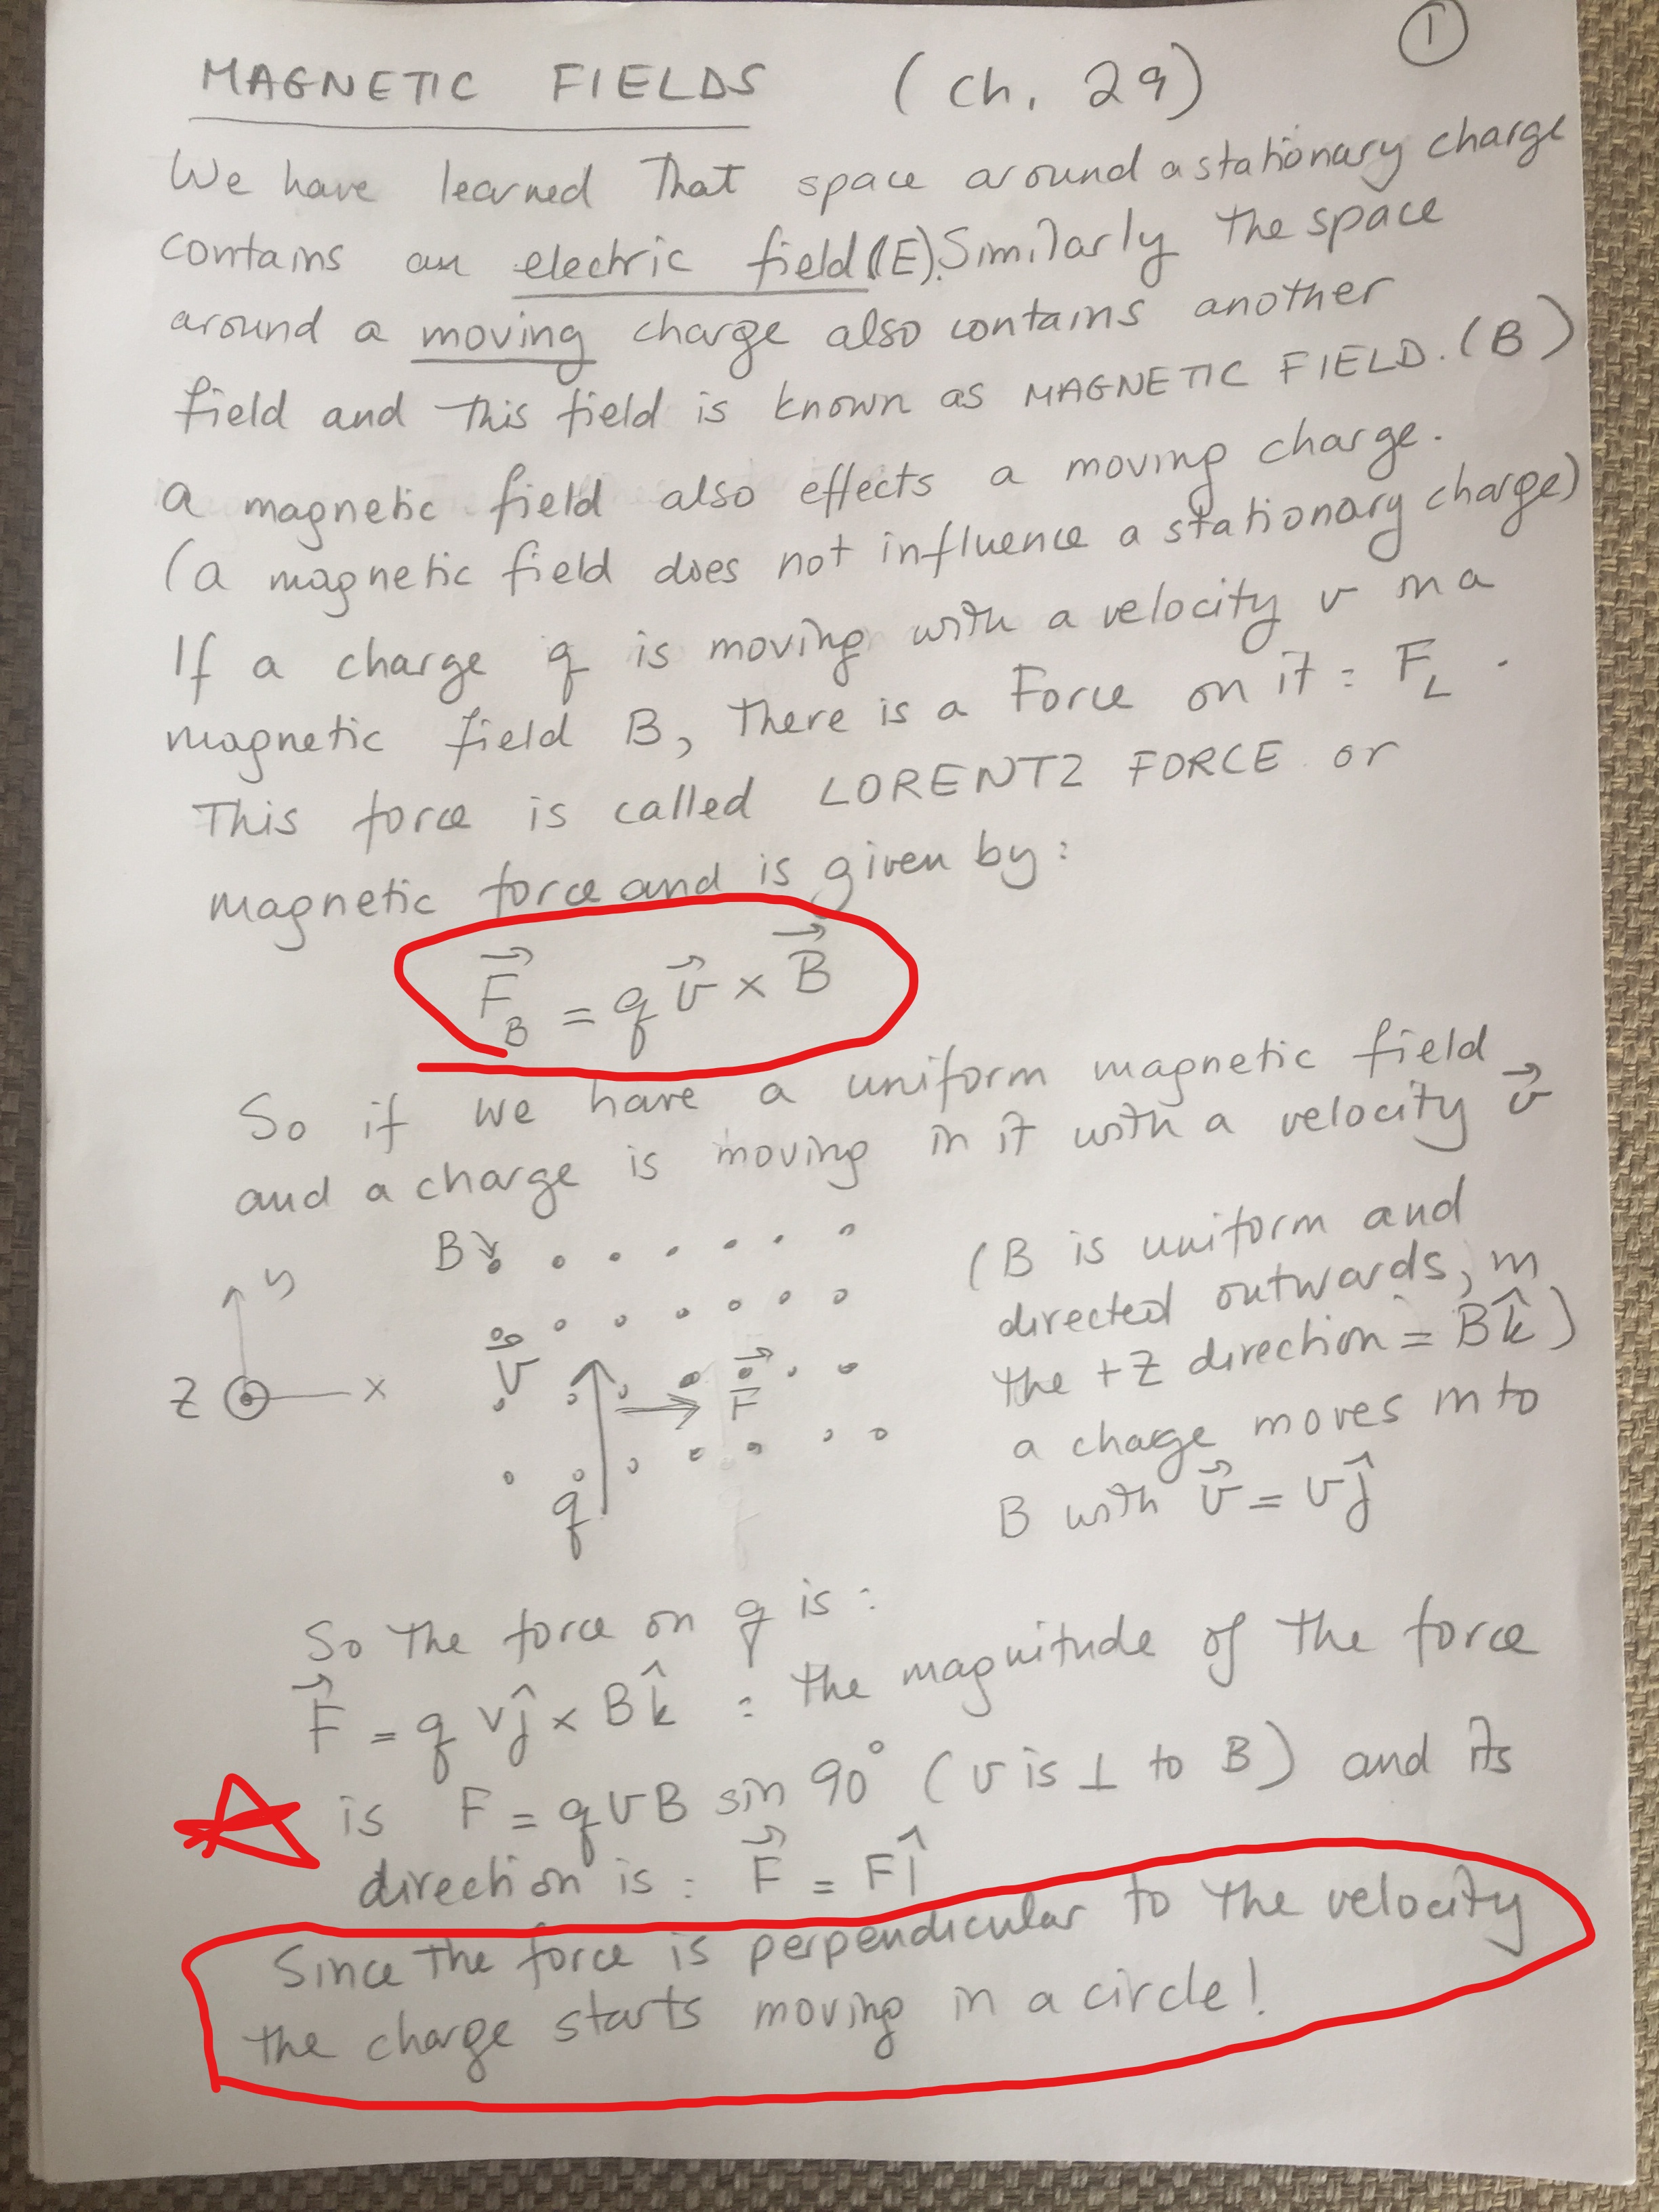 ①
MAGNETIC FIELDS (Ch. 29)
We have learned that space around a stationary charge
contains an electric field (E). Similarly the space
around a moving charge also contains another
field and this field is known as MAGNETIC FIELD. (B)
a magnetic field also effects a moving charge.
(a magnetic field does not influence a stationary charge)
If a charge q is moving with a velocity v in a
magnetic field B, there is a Force on it = F_L.
This force is called LORENTZ FORCE or
magnetic force and is given by:
F⃗_B = q v⃗ × B⃗
So if we have a uniform magnetic field
and a charge is moving in it with a velocity v⃗
B
y
Z x
v⃗
F⃗
q
(B is uniform and
directed outwards, in
the +Z direction = Bk̂)
a charge moves into
B with v⃗ = vĵ
So the force on q is:
F⃗ = q vĵ × Bk̂ : the magnitude of the force
is F = qvB sin 90° (v is ⊥ to B) and its
direction is: F⃗ = Fî
Since the force is perpendicular to the velocity
the charge starts moving in a circle!